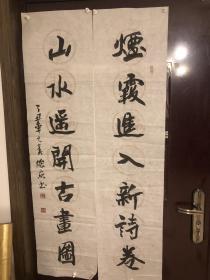 煙霞進入新詩卷
山水遥開古畫圖